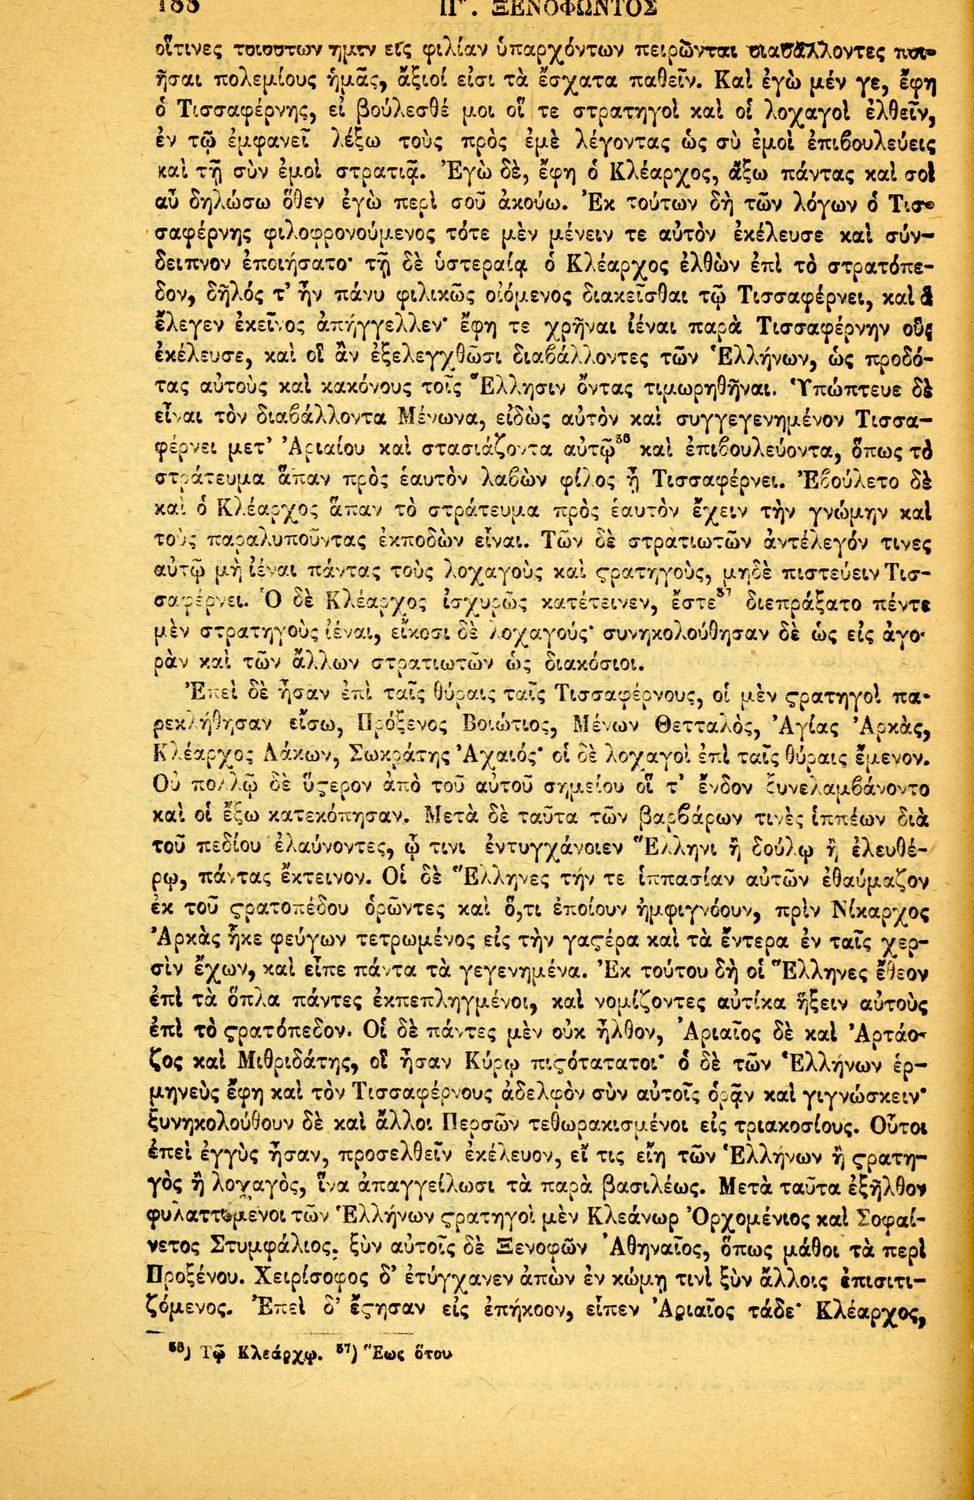 188 ΠΓ′. ΞΕΝΟΦΩΝΤΟΣ
οἵτινες τοιούτων ἡμῖν εἰς φιλίαν ὑπαρχόντων πειρῶνται διαβάλλοντες ποι-
ῆσαι πολεμίους ἡμᾶς, ἄξιοί εἰσι τὰ ἔσχατα παθεῖν. Καὶ ἐγὼ μέν γε, ἔφη
ὁ Τισσαφέρνης, εἰ βούλεσθέ μοι οἵ τε στρατηγοὶ καὶ οἱ λοχαγοὶ ἐλθεῖν,
ἐν τῷ ἐμφανεῖ λέξω τοὺς πρὸς ἐμὲ λέγοντας ὡς σὺ ἐμοὶ ἐπιβουλεύεις
καὶ τῇ σὺν ἐμοὶ στρατιᾷ. Ἐγὼ δὲ, ἔφη ὁ Κλέαρχος, ἄξω πάντας καὶ σοὶ
αὖ δηλώσω ὅθεν ἐγὼ περὶ σοῦ ἀκούω. Ἐκ τούτων δὴ τῶν λόγων ὁ Τισ-
σαφέρνης φιλοφρονούμενος τότε μὲν μένειν τε αὐτὸν ἐκέλευσε καὶ σύν-
δειπνον ἐποιήσατο· τῇ δὲ ὑστεραίᾳ ὁ Κλέαρχος ἐλθὼν ἐπὶ τὸ στρατόπε-
δον, δῆλός τ' ἦν πάνυ φιλικῶς οἰόμενος διακεῖσθαι τῷ Τισσαφέρνει, καὶ ἃ
ἔλεγεν ἐκεῖνος ἀπήγγελλεν· ἔφη τε χρῆναι ἰέναι παρὰ Τισσαφέρνην οὓς
ἐκέλευσε, καὶ οἳ ἂν ἐξελεγχθῶσι διαβάλλοντες τῶν Ἑλλήνων, ὡς προδό-
τας αὐτοὺς καὶ κακόνους τοῖς Ἕλλησιν ὄντας τιμωρηθῆναι. Ὑπώπτευε δὲ
εἶναι τὸν διαβάλλοντα Μένωνα, εἰδὼς αὐτὸν καὶ συγγεγενημένον Τισσα-
φέρνει μετ' Ἀριαίου καὶ στασιάζοντα αὐτῷ⁵⁶ καὶ ἐπιβουλεύοντα, ὅπως τὸ
στράτευμα ἅπαν πρὸς ἑαυτὸν λαβὼν φίλος ᾖ Τισσαφέρνει. Ἐβούλετο δὲ
καὶ ὁ Κλέαρχος ἅπαν τὸ στράτευμα πρὸς ἑαυτὸν ἔχειν τὴν γνώμην καὶ
τοὺς παραλυποῦντας ἐκποδὼν εἶναι. Τῶν δὲ στρατιωτῶν ἀντέλεγόν τινες
αὐτῷ μὴ ἰέναι πάντας τοὺς λοχαγοὺς καὶ ϛρατηγοὺς, μηδὲ πιστεύειν Τισ-
σαφέρνει. Ὁ δὲ Κλέαρχος ἰσχυρῶς κατέτεινεν, ἔστε⁵⁷ διεπράξατο πέντε
μὲν στρατηγοὺς ἰέναι, εἴκοσι δὲ λοχαγούς· συνηκολούθησαν δὲ ὡς εἰς ἀγο-
ρὰν καὶ τῶν ἄλλων στρατιωτῶν ὡς διακόσιοι.
Ἐπεὶ δὲ ἦσαν ἐπὶ ταῖς θύραις ταῖς Τισσαφέρνους, οἱ μὲν ϛρατηγοὶ πα-
ρεκλήθησαν εἴσω, Πρόξενος Βοιώτιος, Μένων Θετταλὸς, Ἀγίας Ἀρκὰς,
Κλέαρχος Λάκων, Σωκράτης Ἀχαιός· οἱ δὲ λοχαγοὶ ἐπὶ ταῖς θύραις ἔμενον.
Οὐ πολλῷ δὲ ὕϛερον ἀπὸ τοῦ αὐτοῦ σημείου οἵ τ' ἔνδον ξυνελαμβάνοντο
καὶ οἱ ἔξω κατεκόπησαν. Μετὰ δὲ ταῦτα τῶν βαρβάρων τινὲς ἱππέων διὰ
τοῦ πεδίου ἐλαύνοντες, ᾧ τινι ἐντυγχάνοιεν Ἕλληνι ἢ δούλῳ ἢ ἐλευθέ-
ρῳ, πάντας ἔκτεινον. Οἱ δὲ Ἕλληνες τήν τε ἱππασίαν αὐτῶν ἐθαύμαζον
ἐκ τοῦ ϛρατοπέδου ὁρῶντες καὶ ὅ,τι ἐποίουν ἠμφιγνόουν, πρὶν Νίκαρχος
Ἀρκὰς ἧκε φεύγων τετρωμένος εἰς τὴν γαϛέρα καὶ τὰ ἔντερα ἐν ταῖς χερ-
σὶν ἔχων, καὶ εἶπε πάντα τὰ γεγενημένα. Ἐκ τούτου δὴ οἱ Ἕλληνες ἔθεον
ἐπὶ τὰ ὅπλα πάντες ἐκπεπληγμένοι, καὶ νομίζοντες αὐτίκα ἥξειν αὐτοὺς
ἐπὶ τὸ ϛρατόπεδον. Οἱ δὲ πάντες μὲν οὐκ ἦλθον, Ἀριαῖος δὲ καὶ Ἀρτάο-
ζος καὶ Μιθριδάτης, οἳ ἦσαν Κύρῳ πιϛότατοι· ὁ δὲ τῶν Ἑλλήνων ἑρ-
μηνεὺς ἔφη καὶ τὸν Τισσαφέρνους ἀδελφὸν σὺν αὐτοῖς ὁρᾷν καὶ γιγνώσκειν·
ξυνηκολούθουν δὲ καὶ ἄλλοι Περσῶν τεθωρακισμένοι εἰς τριακοσίους. Οὗτοι
ἐπεὶ ἐγγὺς ἦσαν, προσελθεῖν ἐκέλευον, εἴ τις εἴη τῶν Ἑλλήνων ἢ ϛρατη-
γὸς ἢ λοχαγὸς, ἵνα ἀπαγγείλωσι τὰ παρὰ βασιλέως. Μετὰ ταῦτα ἐξῆλθον
φυλαττόμενοι τῶν Ἑλλήνων ϛρατηγοὶ μὲν Κλεάνωρ Ὀρχομένιος καὶ Σοφαί-
νετος Στυμφάλιος, ξὺν αὐτοῖς δὲ Ξενοφῶν Ἀθηναῖος, ὅπως μάθοι τὰ περὶ
Προξένου. Χειρίσοφος δ' ἐτύγχανεν ἀπὼν ἐν κώμῃ τινὶ ξὺν ἄλλοις ἐπισιτι-
ζόμενος. Ἐπεὶ δ' ἔϛησαν εἰς ἐπήκοον, εἶπεν Ἀριαῖος τάδε· Κλέαρχος,
⁵⁶) Τῷ Κλεάρχῳ. ⁵⁷) Ἕως ὅτου